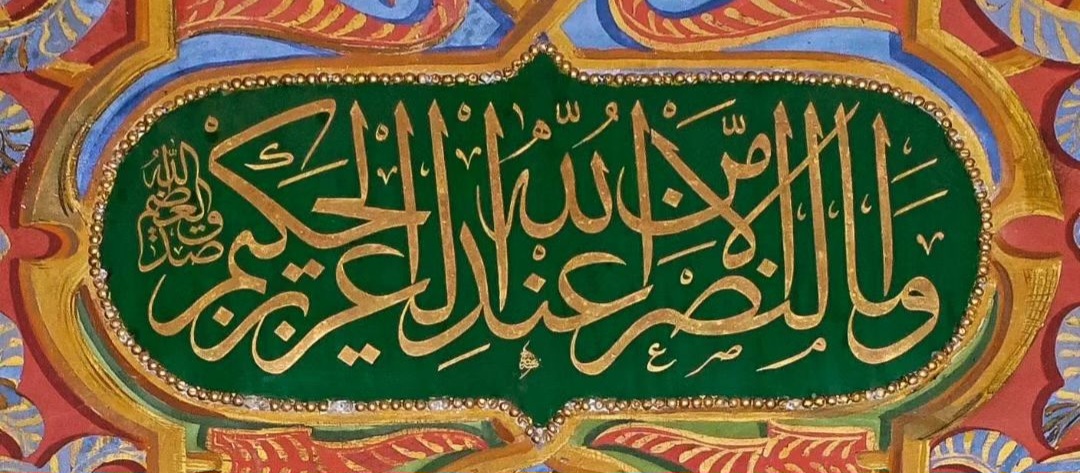 وما النصر الا من عند الله العزيز الحكيم
صدق الله العظيم